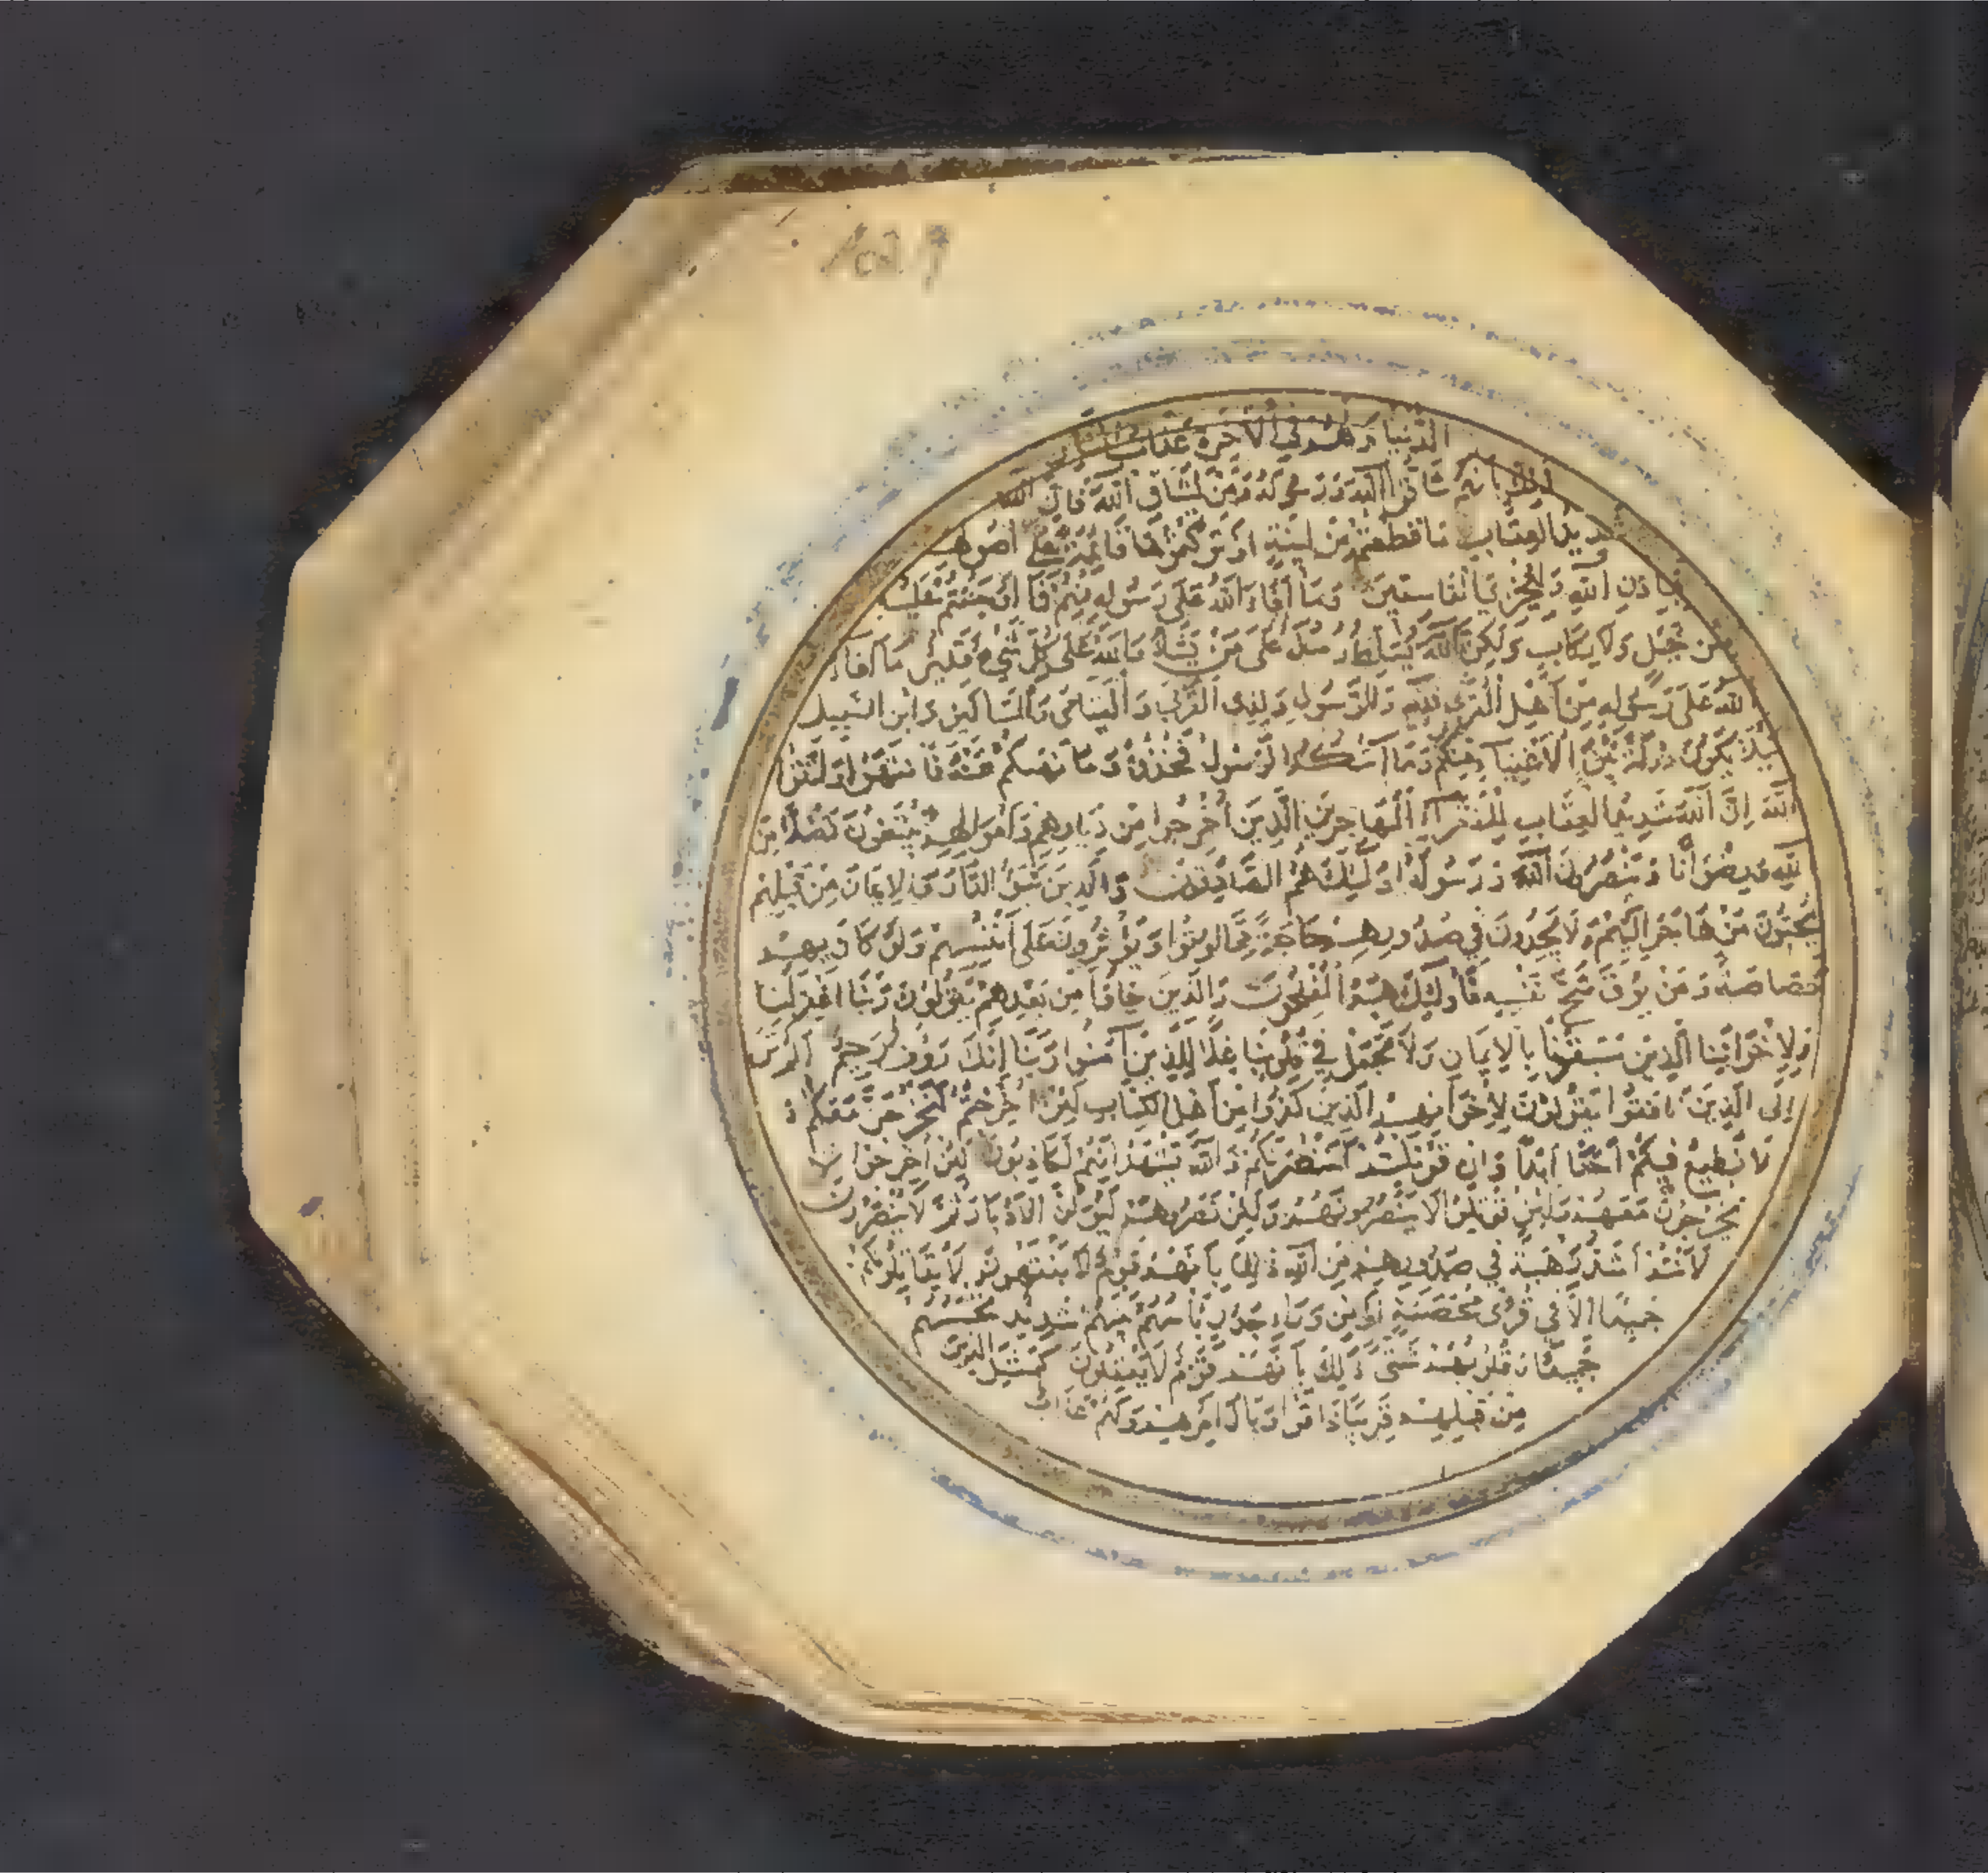 الدنيا ولهم في الآخرة عذاب النار
ذلك بانهم شاقوا الله ورسوله ومن يشاق الله فان الله
شديد العقاب ما قطعتم من لينة او تركتموها قائمة على اصولها
فباذن الله وليخزي الفاسقين وما أفاء الله على رسوله منهم فما اوجفتم عليه
من خيل ولا ركاب ولكن الله يسلط رسله على من يشاء والله على كل شيء قدير ما أفاء
الله على رسوله من اهل القرى فلله وللرسول ولذي القربى واليتامى والمساكين وابن السبيل
كيلا يكون دولة بين الاغنياء منكم وما آتيكم الرسول فخذوه وما نهيكم عنه فانتهوا واتقوا
الله ان الله شديد العقاب للفقراء المهاجرين الذين اخرجوا من ديارهم واموالهم يبتغون فضلا من
الله ورضوانا وينصرون الله ورسوله اولئك هم الصادقون والذين تبوؤا الدار والايمان من قبلهم
يحبون من هاجر اليهم ولا يجدون في صدورهم حاجة مما اوتوا ويؤثرون على انفسهم ولو كان بهم
خصاصة ومن يوق شح نفسه فاولئك هم المفلحون والذين جاؤا من بعدهم يقولون ربنا اغفر لنا
ولاخواننا الذين سبقونا بالايمان ولا تجعل في قلوبنا غلا للذين آمنوا ربنا انك رؤف رحيم الم تر
الى الذين نافقوا يقولون لاخوانهم الذين كفروا من اهل الكتاب لئن اخرجتم لنخرجن معكم و
لا نطيع فيكم احدا ابدا وان قوتلتم لننصرنكم والله يشهد انهم لكاذبون لئن اخرجوا لا
يخرجون معهم ولئن قوتلوا لا ينصرونهم ولئن نصروهم ليولن الادبار ثم لا ينصرون
لانتم اشد رهبة في صدورهم من الله ذلك بانهم قوم لا يفقهون لا يقاتلونكم
جميعا الا في قرى محصنة او من وراء جدر باسهم بينهم شديد تحسبهم
جميعا وقلوبهم شتى ذلك بانهم قوم لا يعقلون كمثل الذين
من قبلهم قريبا ذاقوا وبال امرهم ولهم عذاب